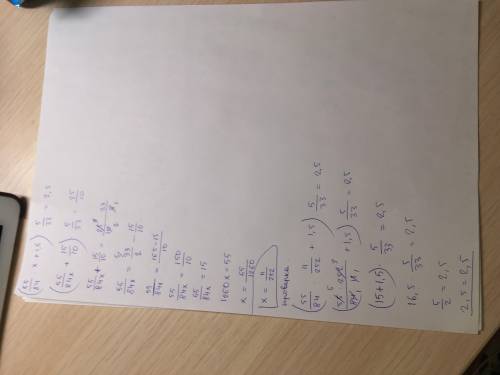 (55/84 x + 1,5) 5/33 = 2,5
(55/84x + 15/10) 5/33 = 25/10
55/84x = 33/2 - 15/10
55/84x = 165-15/10
55/84x = 150/10
55/84x = 15
1260x = 55
x = 55/1260
x = 11/252
проверка
(55/84 : 11/252 + 1,5) 5/33 = 2,5
(15+1,5) 5/33 = 2,5
16,5 · 5/33 = 2,5
5/2 = 2,5
2,5 = 2,5